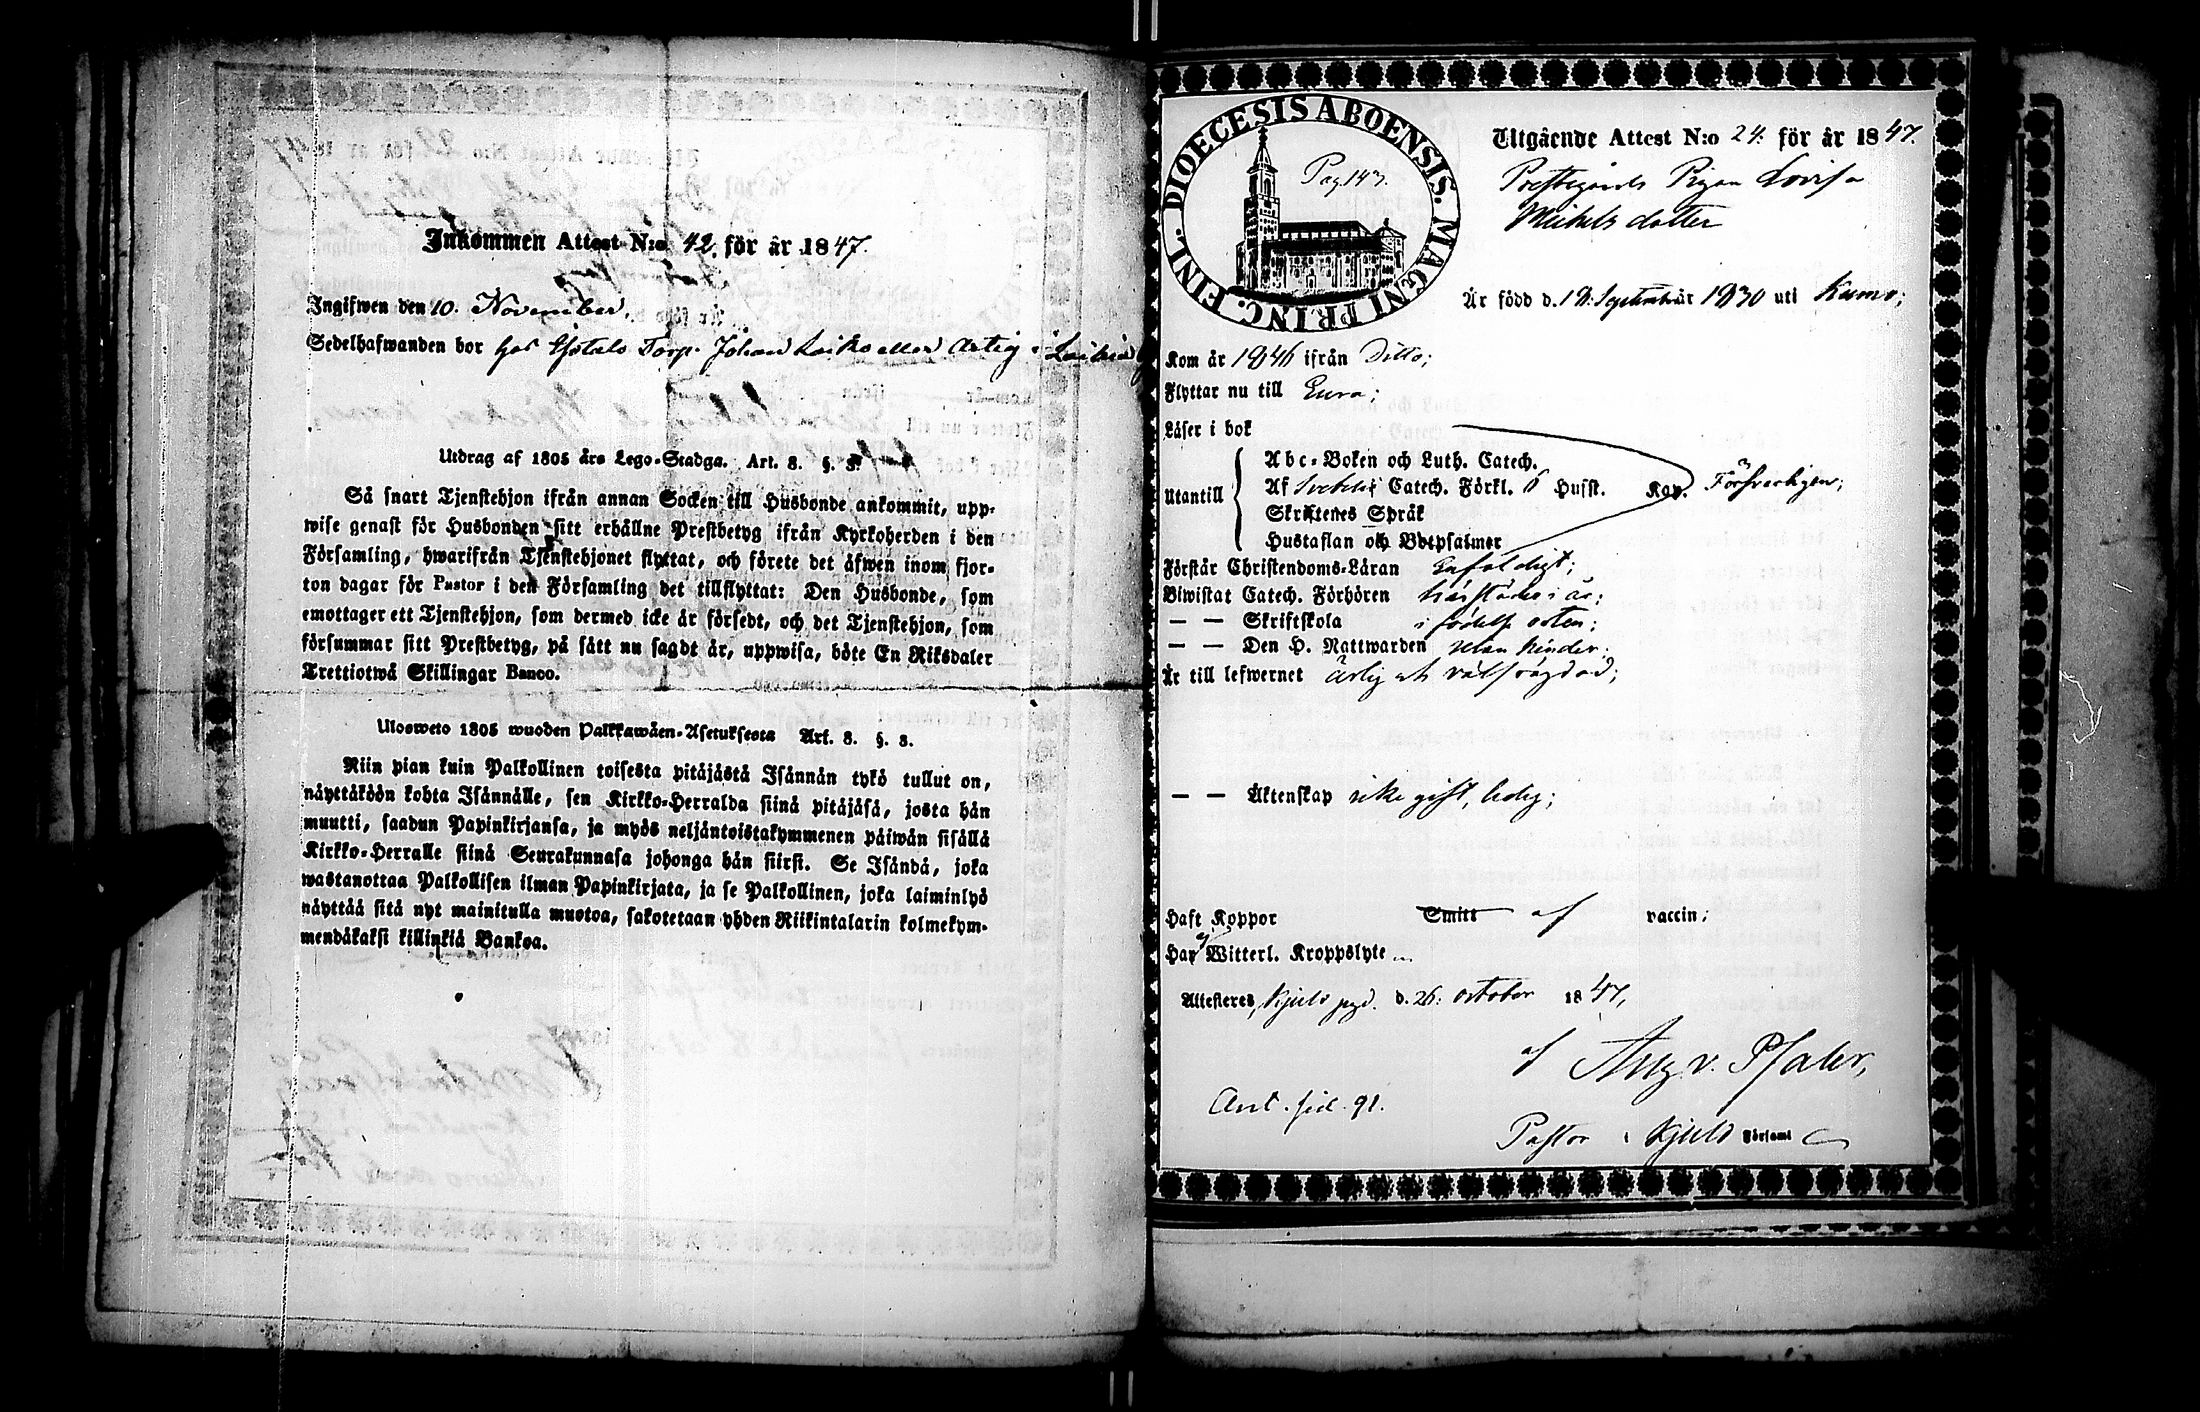 Inkommen Attest N:o 42. för år 1847.
Ingifwen den 10. November.
Sedelhafwanden bor hos Torp. Johan
Utdrag af 1805 års Lego-Stadga. Art. 8. §. 3.
Så snart Tjenstehjon ifrån annan Socken till Husbonde ankommit, upp-
wise genast för Husbonden sitt erhållne Prestbetyg ifrån Kyrkoherden i den
Församling, hwarifrån Tjenstehjonet flyttat, och förete det äfwen inom fjor-
ton dagar för Pastor i den Församling det tillflyttat: Den Husbonde, som
emottager ett Tjenstehjon, som dermed icke är försedt, och det Tjenstehjon, som
försummar sitt Prestbetyg, på sätt nu sagdt är, uppwisa, böte En Riksdaler
Trettiotwå Skillingar Banco.
Ulosweto 1805 wuoden Palkkawäen-Asetuksesta Art. 8. §. 3.
Niin pian kuin Palkollinen toisesta pitäjästä Isännän tykö tullut on,
näyttäköön kohta Isännälle, sen Kirkko-Herralda siinä pitäjäsä, josta hän
muutti, saadun Papinkirjansa, ja myös neljäntoistakymmenen päiwän sisällä
Kirkko-Herralle siinä Seurakunnasa johonga hän siirsi. Se Isändä, joka
wastanottaa Palkollisen ilman Papinkirjata, ja se Palkollinen, joka laiminlyö
näyttää sitä nyt mainitulla muotoa, sakotetaan yhden Riikintalarin kolmekym-
mendäkaksi killinkiä Bankoa.
DIOECESIS ABOENSIS. MAGNI PRINC. FINL.
Pag 143.
Utgående Attest N:o 24. för år 1847.
Prestgårds Pigan Lovisa
Mickels dotter
Är född d. 18. September år 1830 uti Kumo;
Kom år 1846 ifrån Ditto;
Flyttar nu till Eura;
Läser i bok
Utantill
Abc-Boken och Luth. Catech.
Af Svebelii Catech. Förkl. 6 Husst. Kap. Försvarligen;
Skriftenes Språk
Hustaflan och Botpsalmer
Förstår Christendoms-Läran Enfaldigt;
Biwistat Catech. Förhören härstädes i år;
— — Skriftskola i födelse orten;
— — Den H. Nattwarden utan hinder;
Är till lefwernet Ärlig och välfrägdad;
— — Äktenskap icke gift, ledig;
Haft Koppor Smitt af vaccin;
Har ej Witterl. Kroppslyte
Attesteres, Kjulo pgd. d. 26. october 1847,
af Aug. v. Pfaler,
Ant. sid. 91.
Pastor i Kjulo Församl